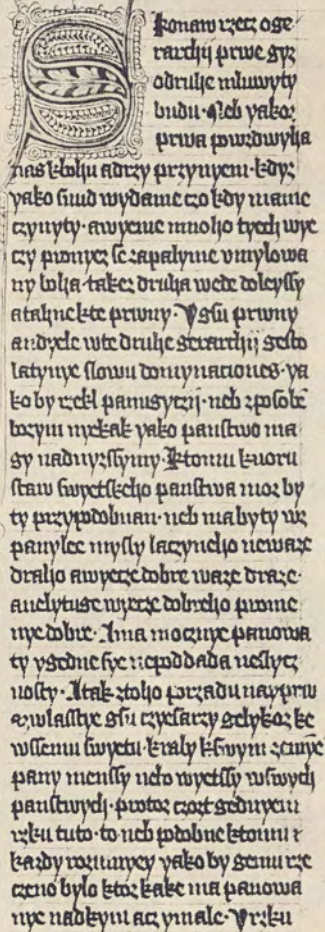 Skonaw rzecz o ge
rarchij prwe gyz
o druhe mluwyty
budu· Neb yakoz
prwa powzdwyha
nas kbohu a drzy przynyem· kdyz
yako suud wydame czo kdy mame
czynyty· a wyeme mnoho tyech wye
czy pronyez se zapalyme vmylowa
ny boha· takez druha wede dolepssy
a tahne kte prwny· Vgsu prwny
andyele wte druhe gerarchij gesto
latynye slowu domynaciones· ya
ko by rzekl panugyczij· neb zposobe
bozym nyekak yako panstwo ma
gy nadnyzssymy· Ktomu kuoru
staw swyetskeho panstwa moz by
ty przypodobnan· neb ma byty wz
panylee mysly laczneho neware
draho a wyecze dobre waze draze·
a nelytuge wyecze dobreho promie
nye dobre· A ma mocznye panowa
ty sye nepoddada neslycz
nosty· A tak ztoho porzadu nayprw
wlasstye gsu czyesarzy gelykoz ke
wssemu swyetu· kraly kswym zemye
pany menssy nebo wyetssy wswych
panstwych· protoz czoz gednyem
rzku tuto· to neb podobne ktomu
kazdy rozumyey yako by gemu rze
czeno bylo ktoz kake ma panowa
nye nadkym acz ymale· Vrzku